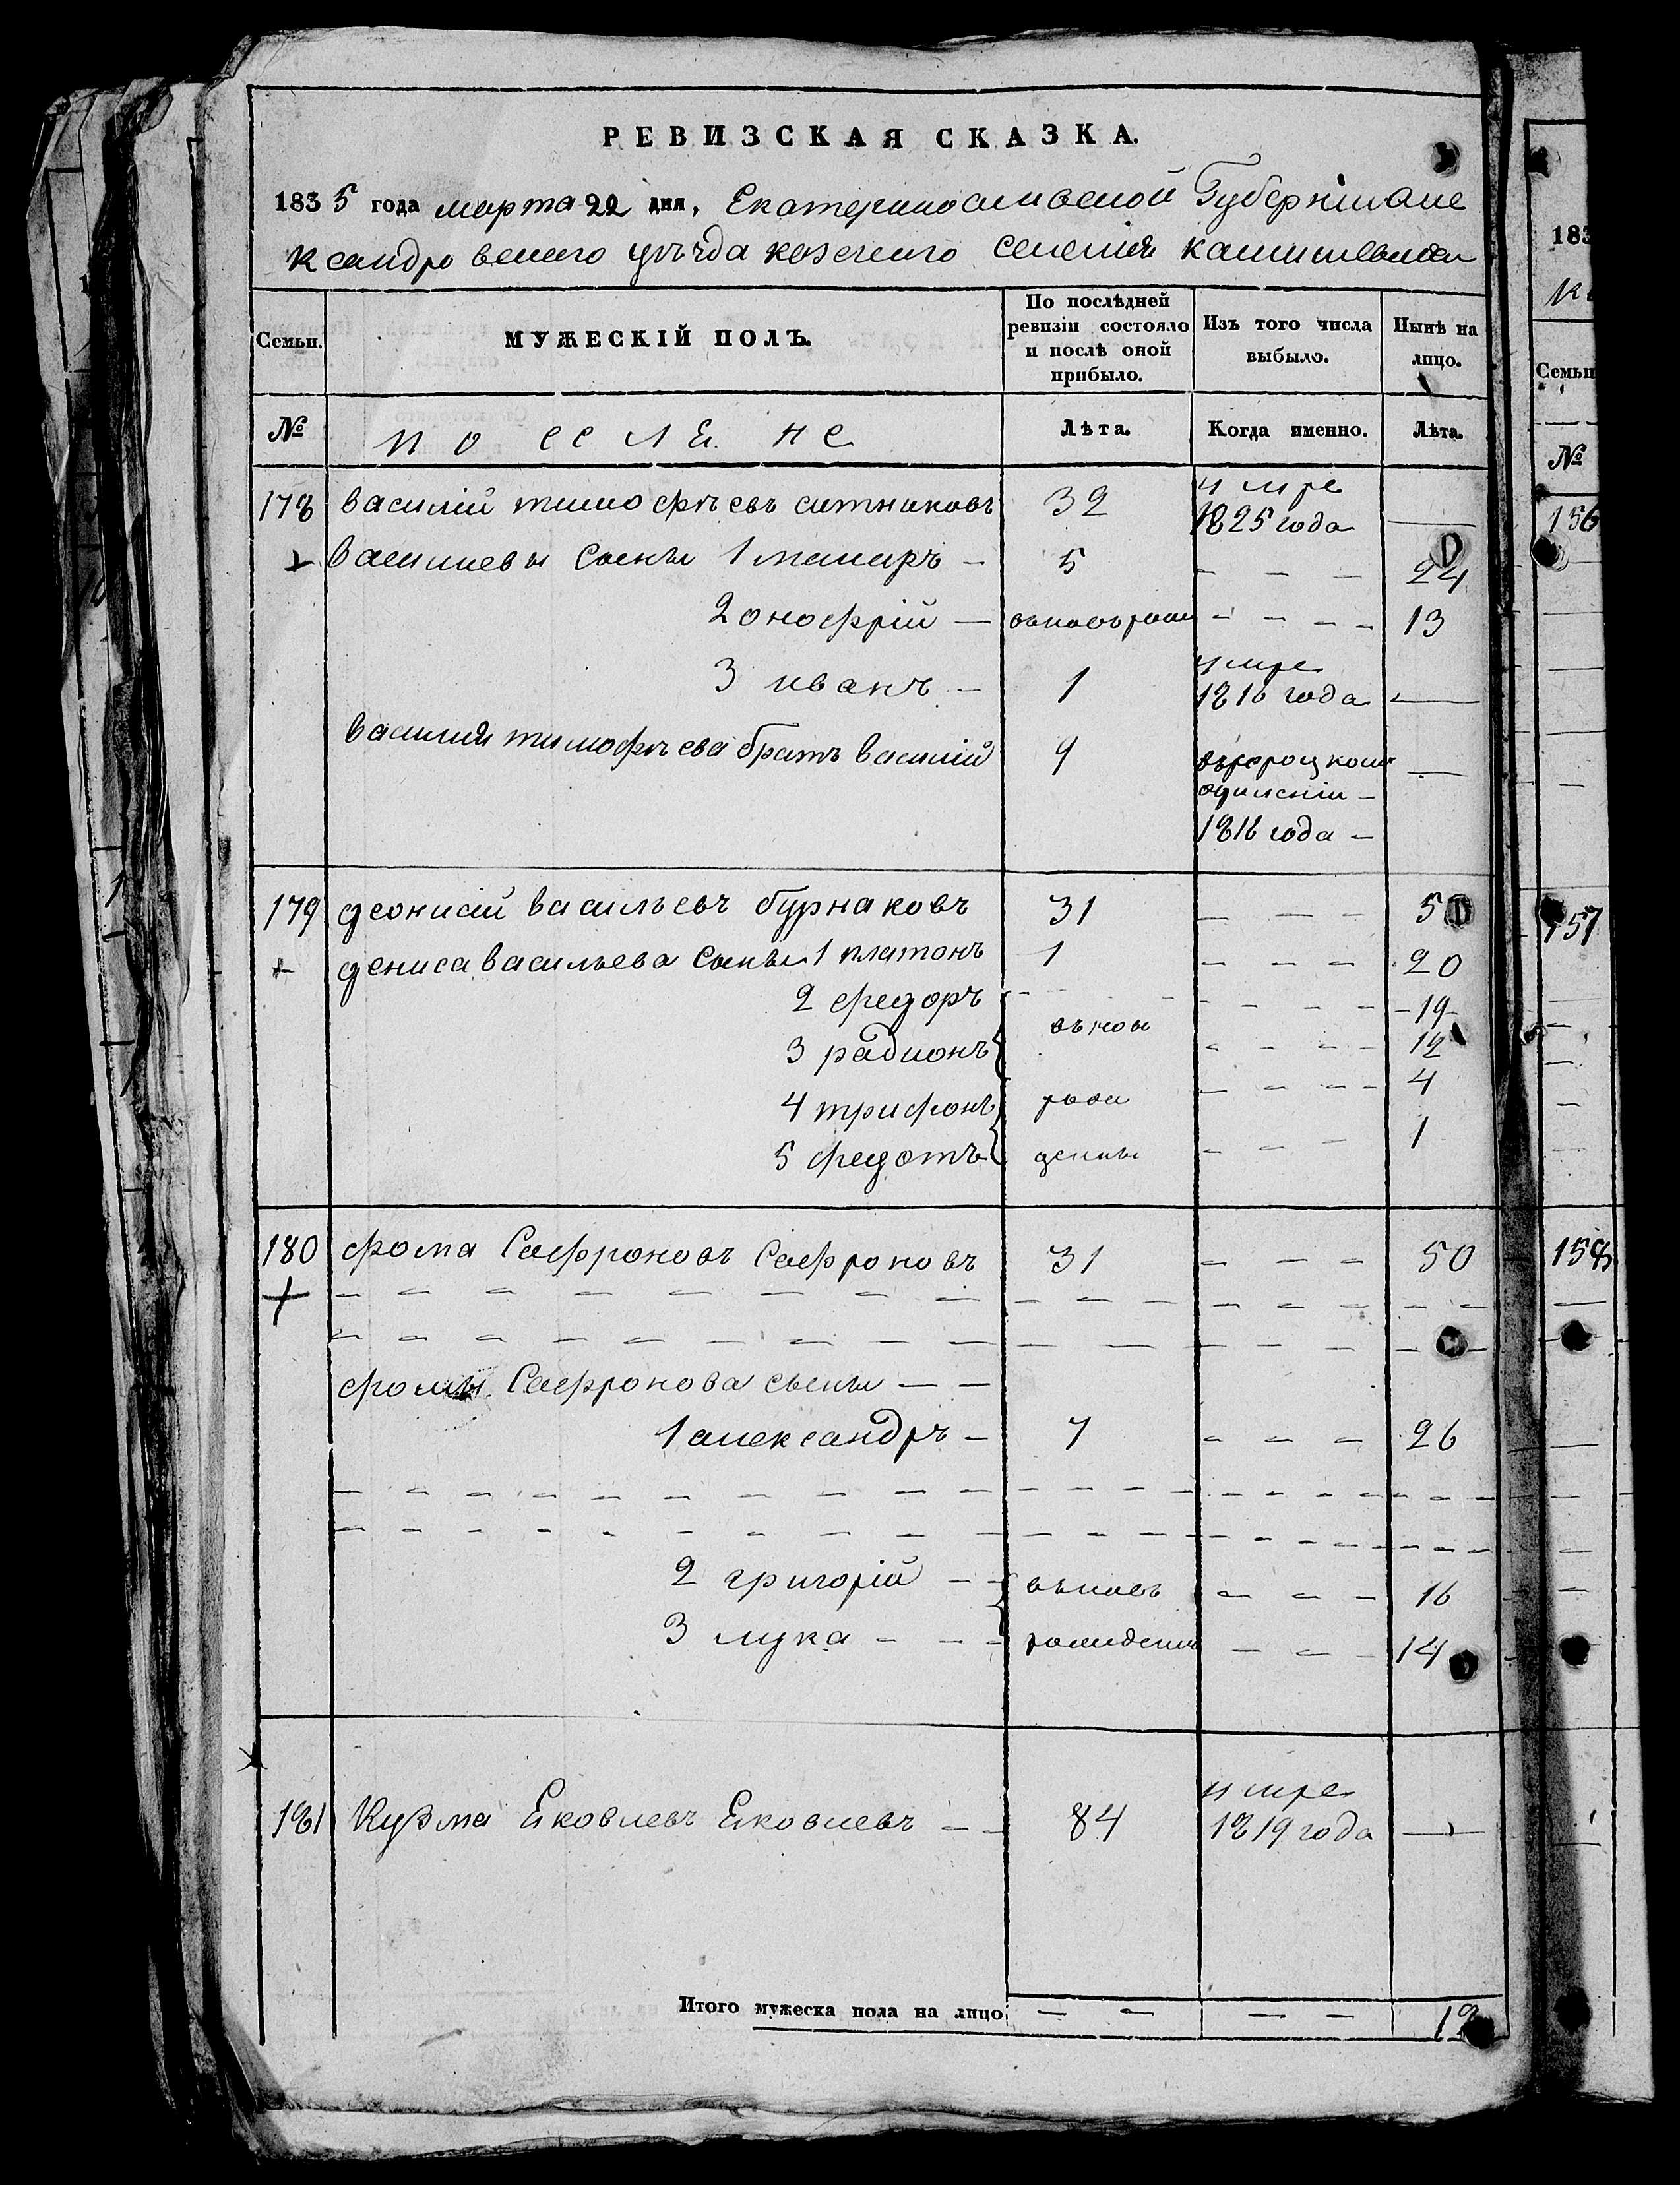 РЕВИЗСКАЯ СКАЗКА.
1835 года марта 22 дня, Екатеринославской Губерніи Але
ксандровскаго уѣзда казеннаго селенія
Семьи.
МУЖЕСКІЙ ПОЛЪ.
По послѣдней ревизіи состояло и послѣ оной прибыло.
Изъ того числа выбыло.
Нынѣ на лицо.
№
поселяне
Лѣта.
Когда именно.
Лѣта.
178 василій тимофѣевъ ситниковъ 32 умре 1825 года —
васильевы сыны 1 макаръ — 5 — — — 24
2 онофрій — — — — — 13
3 иванъ — 1 умре 1816 года —
василія тимофѣева братъ василій 9 —
1816 года —
179 деонисій васильевъ бурнаковъ 31 — — — 50
дениса васильева сыны 1 платонъ 1 — — — 20
2 федоръ — — — — 19
3 радионъ вьновь — — — — 12
4 трифонъ рож — — — — 4
5 федотъ денны — — — 1
180 фома Сафроновъ Сафроновъ 31 — — — 50
фомы Сафронова сыны — —
1 александръ — 7 — — — 26
2 григорій — — вьновь — — — 16
3 лука — — — рожденны — — — 14
181 Кузма Яковлевъ Яковлевъ — — 84 умре 1819 года —
Итого мужеска пола на лицо — — — —
183
Семьи
№
156
157
158